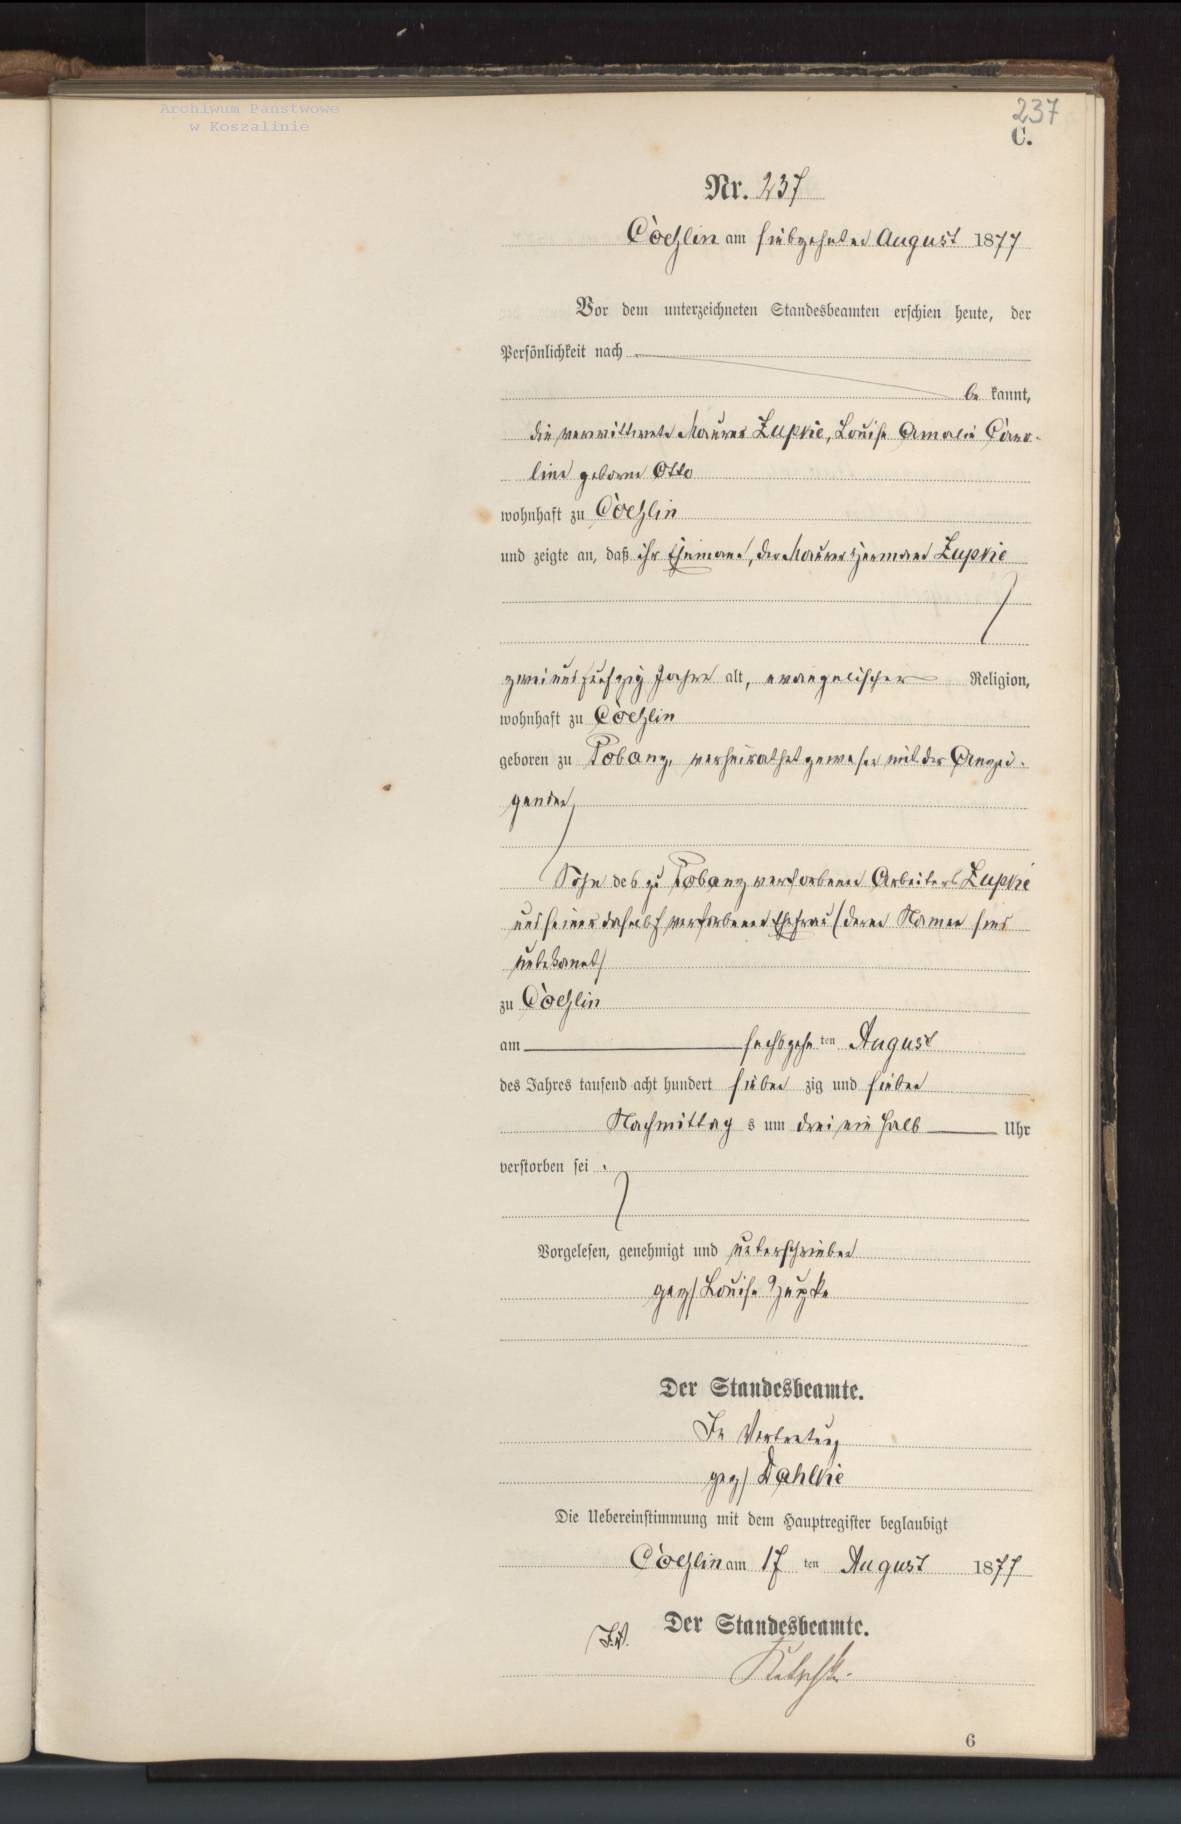 Archiwum Panstwowe
w Koszalinie
237
C.
Nr. 237
Cöszlin am siebzehnten August 1877
Vor dem unterzeichneten Standesbeamten erschien heute, der
Persönlichkeit nach
be kannt,
die verwittwete Maurer Zupke, Louise Amalie Caro-
line geborne Otto
wohnhaft zu Cöszlin
und zeigte an, daß ihr Ehemann, der Maurer Hermann Zupke
zweiundfünfzig Jahre alt, evangelischer Religion,
wohnhaft zu Cöszlin
geboren zu Pobanz, verheirathet gewesen mit der Anzei-
genden,
Sohn des zu Pobanz verstorbenen Arbeiters Zupke
und seiner daselbst verstorbenen Ehefrau (deren Namen sind
unbekannt)
zu Cöszlin
am sechszehn ten August
des Jahres tausend acht hundert sieben zig und sieben
Nachmittag s um drei ein halb Uhr
verstorben sei .
Vorgelesen, genehmigt und unterschrieben
gez/ Louise Zupke
Der Standesbeamte.
In Vertretung
gez/ Dahlke
Die Uebereinstimmung mit dem Hauptregister beglaubigt
Cöszlin am 17 ten August 1877
Der Standesbeamte.
I.V.
6